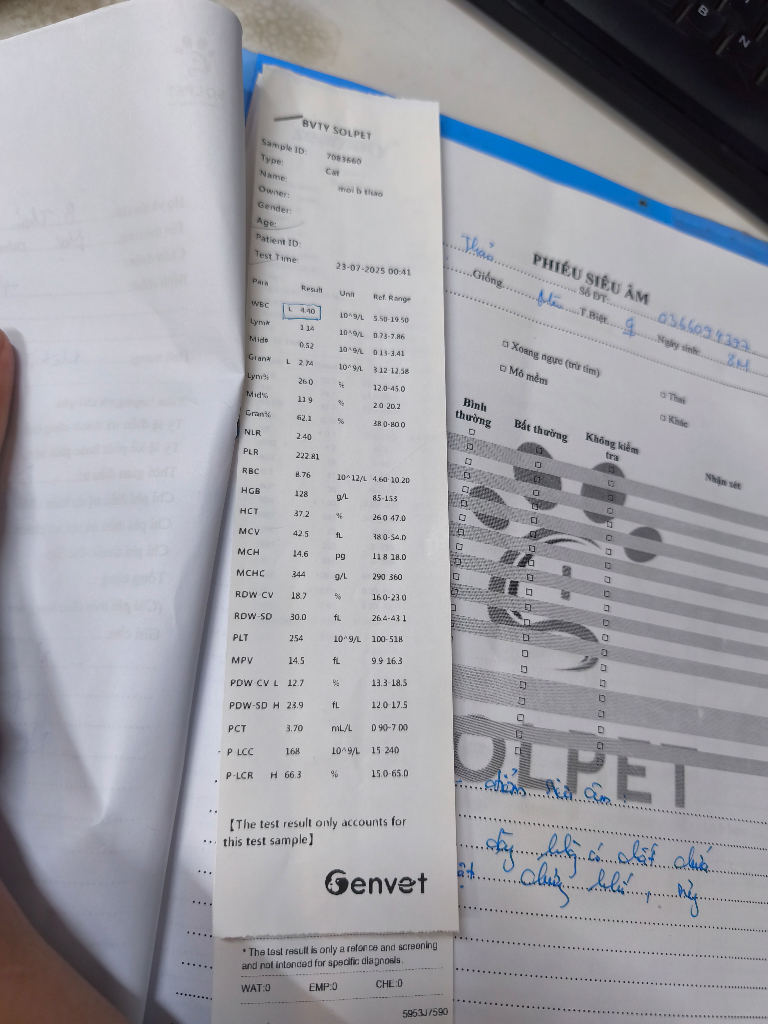 BVTY SOLPET
Sample ID: 7083660
Type: Cat
Name: moi b thao
Owner:
Gender:
Age:
Patient ID:
Test Time: 23-07-2025 00:41
Para Result Unit Ref. Range
WBC L 4.40 10^9/L 5.50-19.50
Lym# 1.14 10^9/L 0.73-7.86
Mid# 0.52 10^9/L 0.13-3.41
Gran# L 2.74 10^9/L 3.12-12.58
Lym% 26.0 % 12.0-45.0
Mid% 11.9 % 2.0-20.2
Gran% 62.1 % 38.0-80.0
NLR 2.40
PLR 222.81
RBC 8.76 10^12/L 4.60-10.20
HGB 128 g/L 85-153
HCT 37.2 % 26.0-47.0
MCV 42.5 fL 38.0-54.0
MCH 14.6 pg 11.8-18.0
MCHC 344 g/L 290-360
RDW-CV 18.7 % 16.0-23.0
RDW-SD 30.0 fL 26.4-43.1
PLT 254 10^9/L 100-518
MPV 14.5 fL 9.9-16.3
PDW-CV L 12.7 % 13.3-18.5
PDW-SD H 23.9 fL 12.0-17.5
PCT 3.70 mL/L 0.90-7.00
P-LCC 168 10^9/L 15-240
P-LCR H 66.3 % 15.0-65.0
【The test result only accounts for
this test sample】
Genvet
* The test result is only a refence and screening
and not intended for specific diagnosis.
WAT:0 EMP:0 CHE:0
5953J7590
PHIẾU SIÊU ÂM
Thảo Số ĐT: 0366094397
Giống T.Biệt Ngày sinh:
□ Xoang ngực (trừ tim) □ Thai
□ Mô mềm □ Khác
Bình thường Bất thường Không kiểm tra Nhận xét
SOLPET
B
N